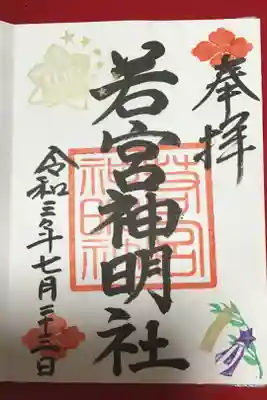 奉拝
若宮神明社
令和三年七月二十二日
若宮
神明社